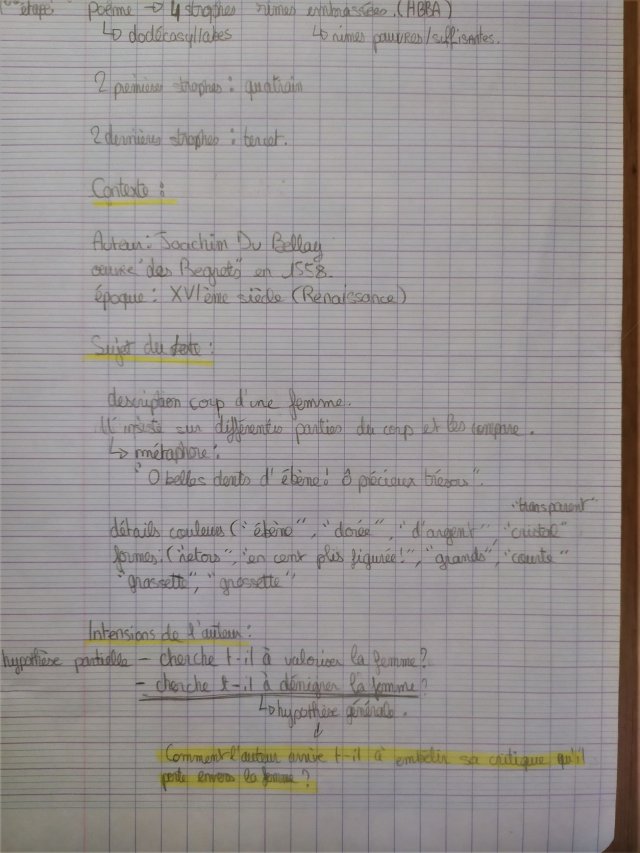 étape poème → 4 strophes rimes embrassées. (ABBA)
↳ dodécasyllabes ↳ rimes pauvres/suffisantes.
2 premières strophes : quatrain
2 dernières strophes : tercet.
Contexte :
Auteur : Joachim Du Bellay
œuvre "des Regrets" en 1558.
époque : XVIème siècle (Renaissance)
Sujet du texte :
description corp d'une femme.
Il insiste sur différentes parties du corp et les compare.
↳ métaphore :
"O belles dents d'ébène ! ô précieux trésors".
"transparent"
détails couleurs ("ébène", "dorée", "d'argent", "cristal"
formes : ("retors", "en cent plis figurée !", "grands", "courte"
"grassette", "grossette"
Intensions de l'auteur :
hypothèse partielle - cherche t-il à valoriser la femme ?
- cherche t-il à dénigrer la femme ?
↳ hypothèse générale.
↓
Comment l'auteur arrive t-il à embelir sa critique qu'il
porte envers la femme ?